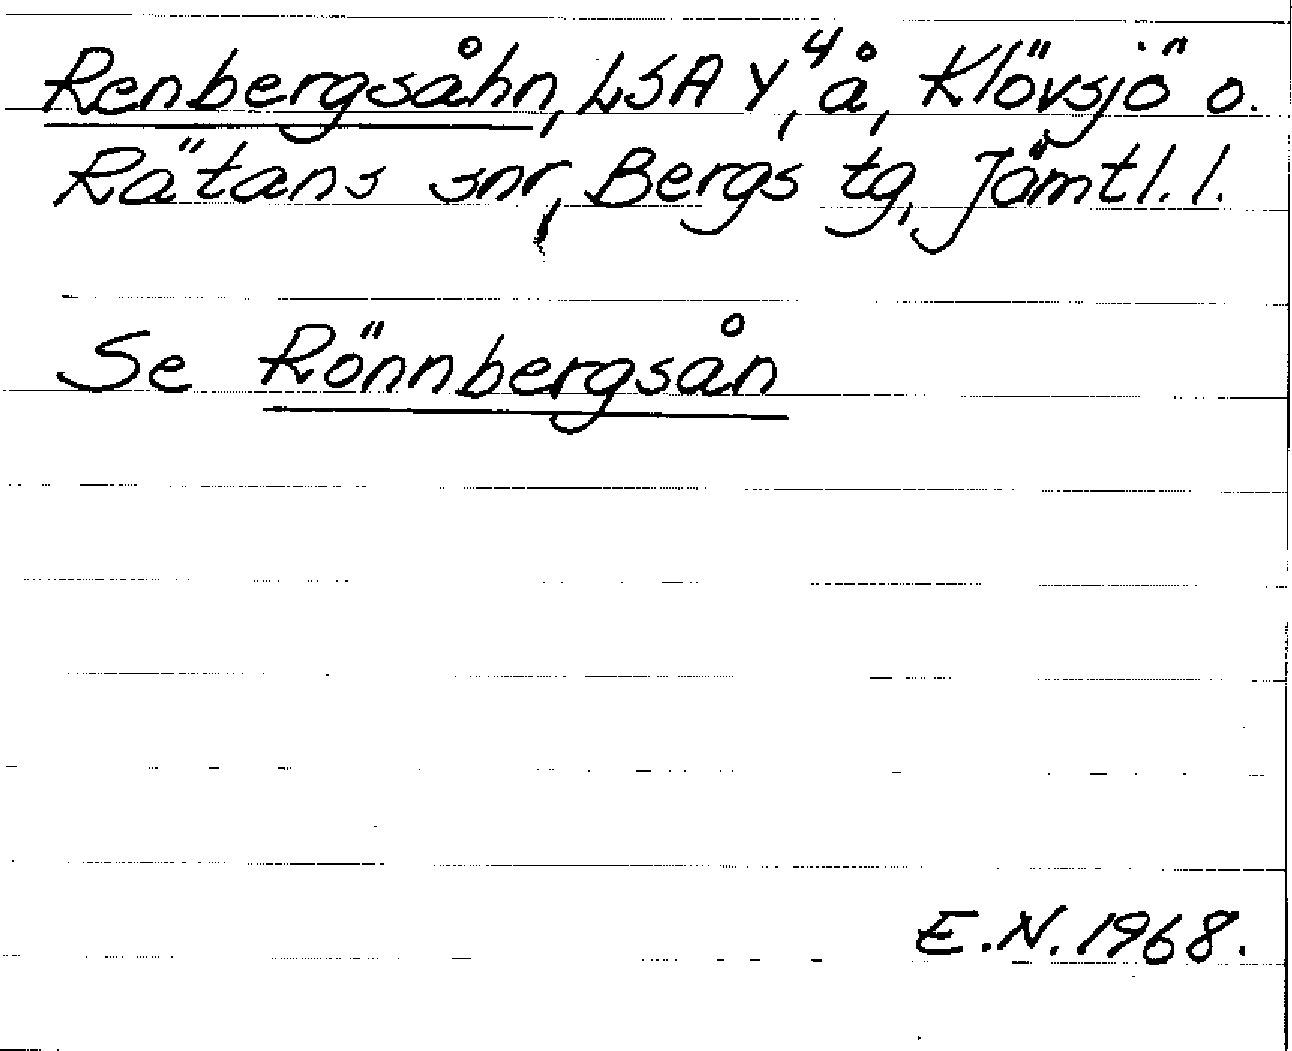 Renbergsåhn, LSA Y⁴, å, Klövsjö o.
Rätans snr, Bergs tg, Jämtl. l.
Se Rönnbergsån
E.N. 1968.